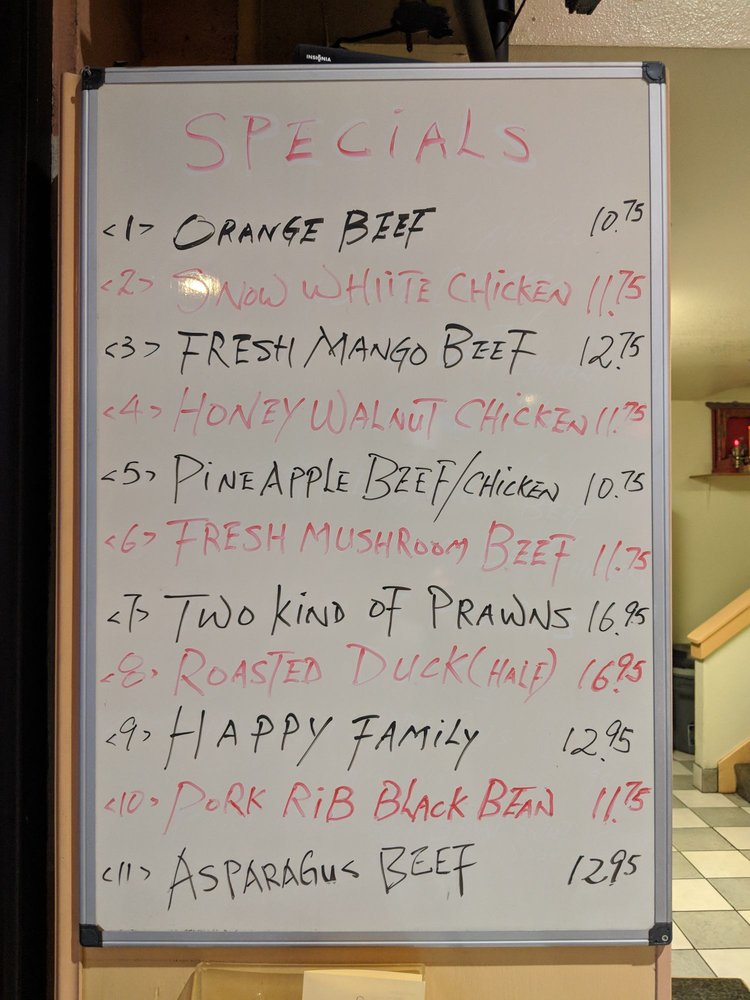 INSIGNIA
SPECIALS
<1> ORANGE BEEF 10.75
<2> SNOW WHIITE CHICKEN 11.75
<3> FRESH MANGO BEEF 12.75
<4> HONEY WALNUT CHICKEN 11.75
<5> PINEAPPLE BEEF/CHICKEN 10.75
<6> FRESH MUSHROOM BEEF 11.75
<7> TWO KIND OF PRAWNS 16.95
<8> ROASTED DUCK (HALF) 16.95
<9> HAPPY FAMILY 12.95
<10> PORK RIB BLACK BEAN 11.75
<11> ASPARAGUS BEEF 12.95